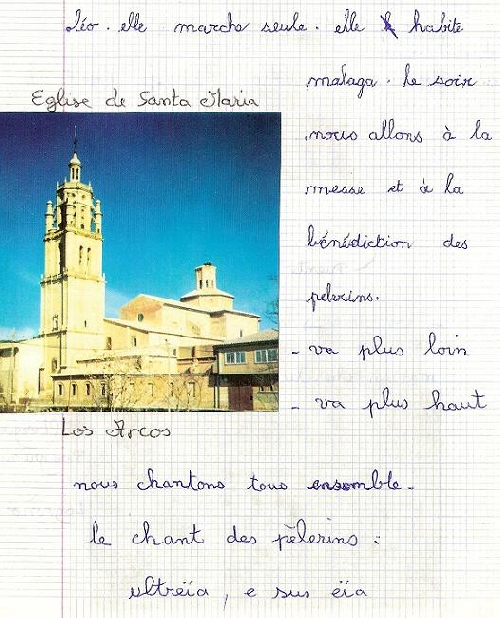 Léo. elle marche seule. elle habite
malaga. le soir
Eglise de Santa Maria
nous allons à la
messe et à la
bénédiction des
pelerins.
- va plus loin
- va plus haut
Los Arcos
nous chantons tous ensemble -
le chant des pèlerins :
ultreïa, e sus eïa